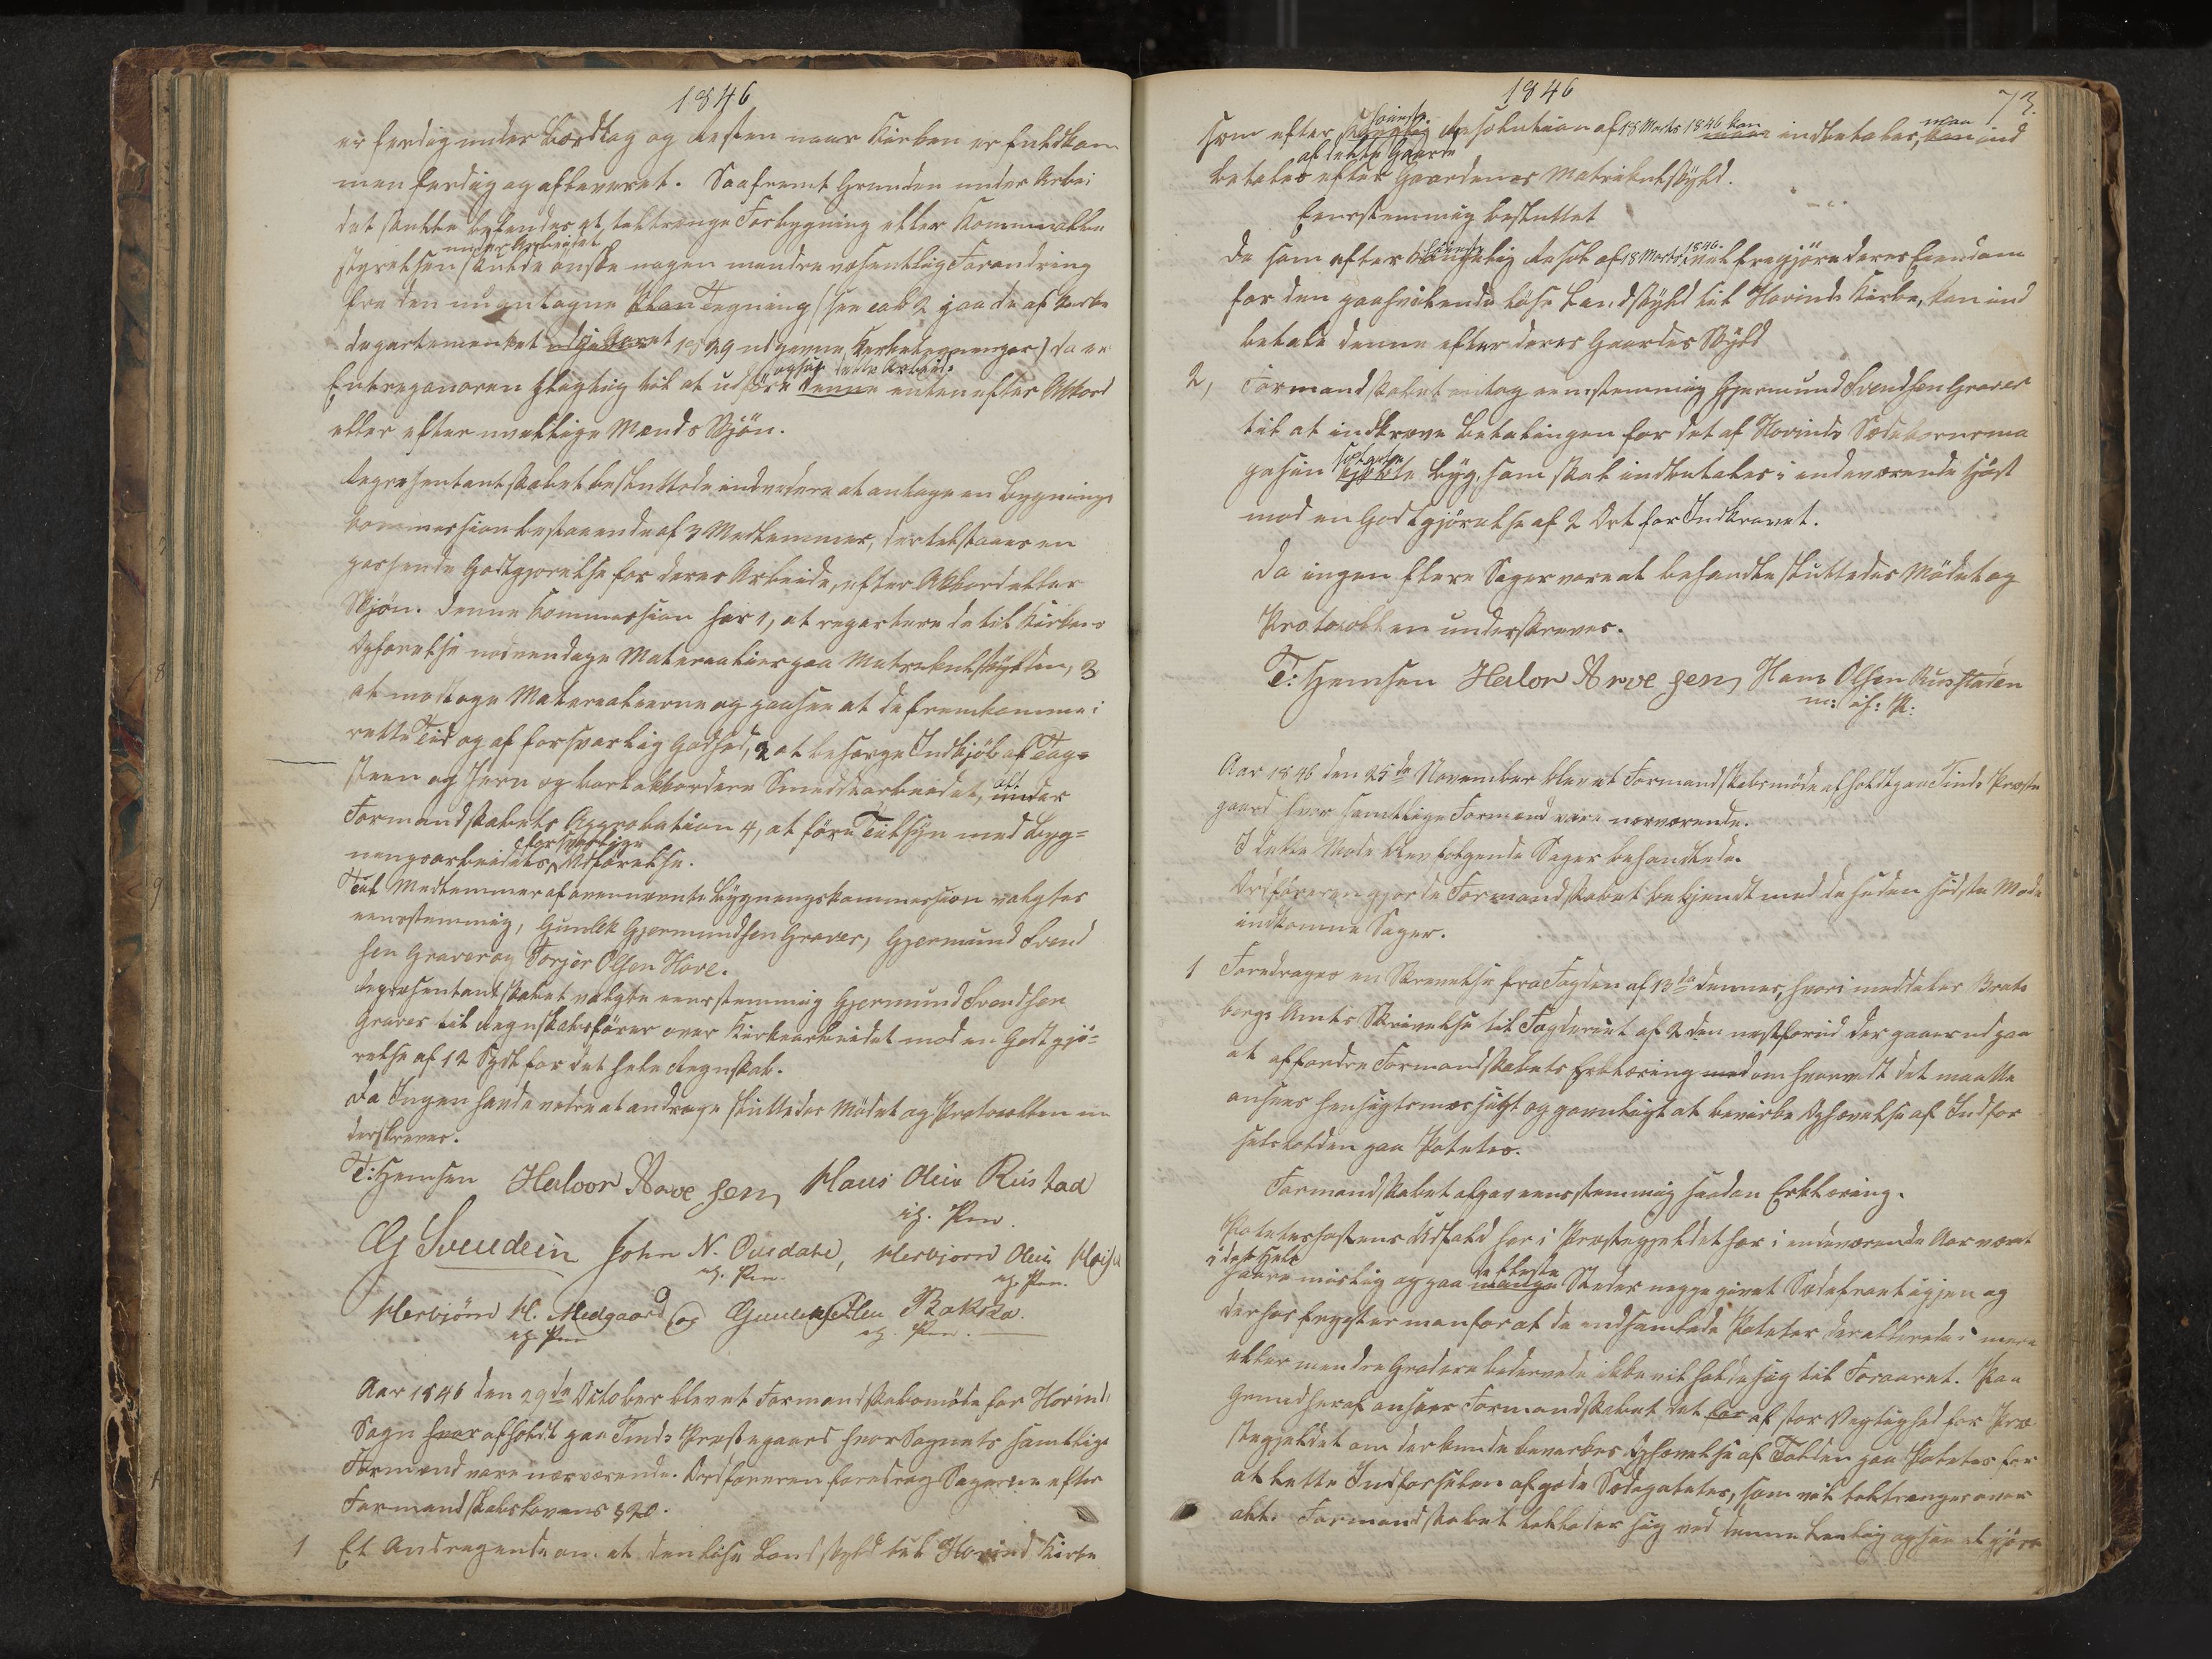 1846
er færdig under Bordtag og Resten naar Kirken er fuldkom
men færdig og afleveret. Saafremt Grunden under Arbei
det skulde befindes at tiltrænge Forbygning eller Kommunalbe
styrelsen under Arbeidet skulde ønske nogen mindre væsentlig Forandring
fra den nu antagne Plan Tegning (see cab 2 paa de af Kirke
departementet udgivne 1829 udgivne Kirketegninger) da er
Entreprenøren pligtig til at udføre denne ogsaa dette Arbeide enten efter Akkord
eller efter uvillige Mænds Skjön.
Repræsentantskabet besluttede endvidere at antage en Bygnings
kommission bestaaende af 3 Medlemmer, der tilstaaes en
passende Godtgjørelse for deres Arbeide, efter Akkord eller
Skjön. Denne Kommission har 1, at repartere de til Kirkens
Opførelse nødvendige Materialier paa Matrikulskylden, 3
at modtage Materialierne og paasee at de fremkomme i
rette Tid og af forsvarlig Godhed, 2 at besørge Indkjöb af Tag=
steen og Jern og bortakkordere Smedearbeidet, alt under
Formandskabets Approbation 4, at føre Tilsyn med Byg=
ningsarbeidets forsvarlige Udførelse.
Til Medlemmer af ovennævnte Bygningskommission valgtes
eenstemmig, Gunlek Gjermundsen Graver, Gjermund Svend
sen Graver og Torjer Olsen Hove.
Repræsentantskabet valgte eenstemmig Gjermund Svendsen
Graver til Regnskabsfører over Kirkearbeidet mod en Godtgjø=
relse af 12 Spdl for det hele Regnskab.
Da Ingen havde videre at andrage sluttedes Mödet og Protocollen un
derskreves.
T: Hemsen Halvor Arvesen Hans Olsen Rustad
m. i. Pen
G Svendsen John N. Ousdahl, Herbiorn Olsen
m. Pen m. Pen.
Herbiörn H. Medgaard og Gunlek Olsen Bakka.
m. Pen m. Pen.
Aar 1846 den 29de October blev et Formandskabsmöde for Hovinds
Sogn hvor afholdt paa Tinds Prestegaard hvor Sognets samtlige
Formænd vare nærværende. Ordføreren foredrog Sagerne efter
Formandskabslovens § 20.
1 Et Andragende om at den löse Landskyld til Hovind Kirke
1846 73.
som efter høieste Resolution af 18 Marts 1846 kan indbetales, maa kan ind
betales af dette Gaarde efter Gaardenes Matrikulskyld.
Eenstemmig besluttet
De som efter høieste Resol af 18 Marts 1846 vil frigjöre deres Eiendom
for den paahvilende löse Landskyld til Hovinds Kirke, kan ind
betale denne efter deres Gaardes Skyld
2, Formandskabet antog eenstemmig Gjermund Svendsen Graver
til at indkræve Betalingen for det af Hovinds Sædekornsma
gasin kjøbte Byg, som skal indbetales i indeværende Høst
mod en Godtgjörelse af 2 Ort for Indkravet.
Da ingen flere Sager vare at behandle sluttedes Mödet og
Protocollen underskreves.
T: Hemsen Halvor Arvesen Hans Olsen Russtaden
m: ih: P:
Aar 1846 den 25de November blev et Formandskabsmöde afholdt paa Tinds Preste
gaard hvor samtlige Formænd vare nærværende.
I dette Möde blev følgende Sager behandlede.
Ordføreren gjorde Formandskabet bekjendt med de siden sidste Möde
indkomne Sager.
1 Foredroges en Skrivelse fra Fogden af 13de dennes, hvori meddeles Brats
bergs Amts Skrivelse til Fogderiet af 2den næstforrud der gaaer ud paa
at affordre Formandskabets Erklæring med om hvorvidt det maatte
ansees hensigtsmæssigt og gavnligt at bevirke Ophævelse af Indfør
selstolden paa Poteter.
Formandskabet afgav eenstemmig saadan Erklæring.
Potetershøstens Udfald har i Prestegjeldet her i indeværende Aar været
i det Hele saare mislig og paa mange de fleste Steder neppe givet Sædefrøet igjen og
derhos frygter man for at de indsamlede Poteter der allerede i mere
eller mindre Grad ere bedærvede ikke vil holde sig til Foraaret. Paa
Grund heraf ansees Formandskabet det for af stor Vigtighed for Præ
stegjeldet om der kunde bevirkes Ophævelse af Tolden paa Poteter for
at lette Indførselen af gode Sædepoteter, som vil tiltrænges over
alt. Formandskabet tillader sig ved denne Leilighed at gjøre